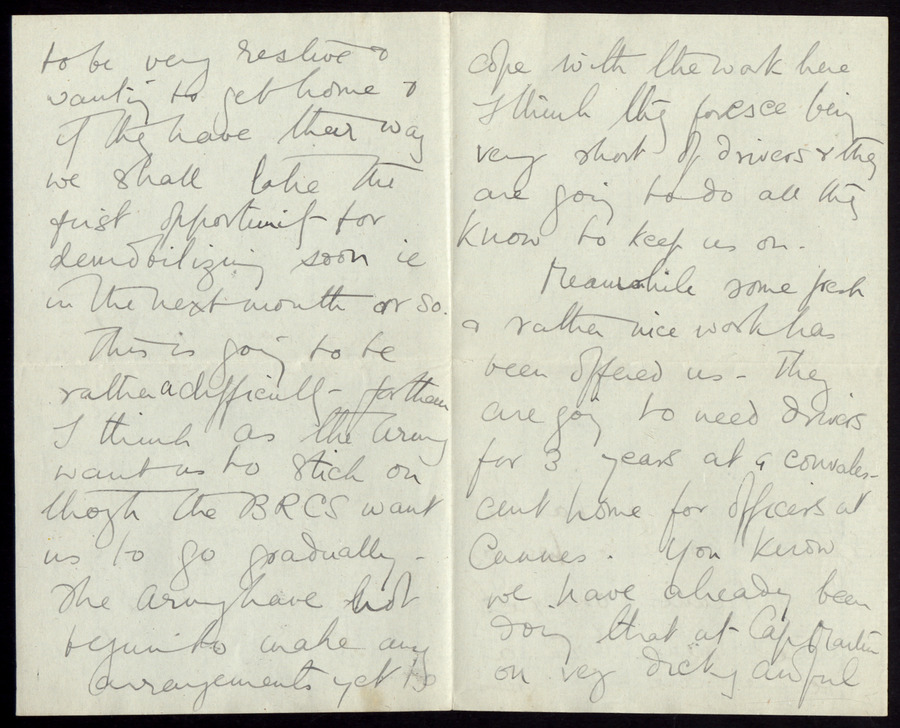 to be very restive &
wanting to get home &
if they have their way
we shall take the
first opportunity for
demobilizing soon ie
in the next month or so.
This is going to be
rather a difficulty - for them
I think as the Army
want us to stick on
though the BRCS want
us to go gradually -
The Army have not
begun to make any
arrangements yet to
cope with the work here
I think they foresee being
very short of drivers & they
are going to do all they
know to keep us on -
Meanwhile some fresh
& rather nice work has
been offered us - They
are going to need drivers
for 3 years at a convales-
cent home for officers at
Cannes. You know
we have already been
doing that at Cap Martin
on very dicky awful